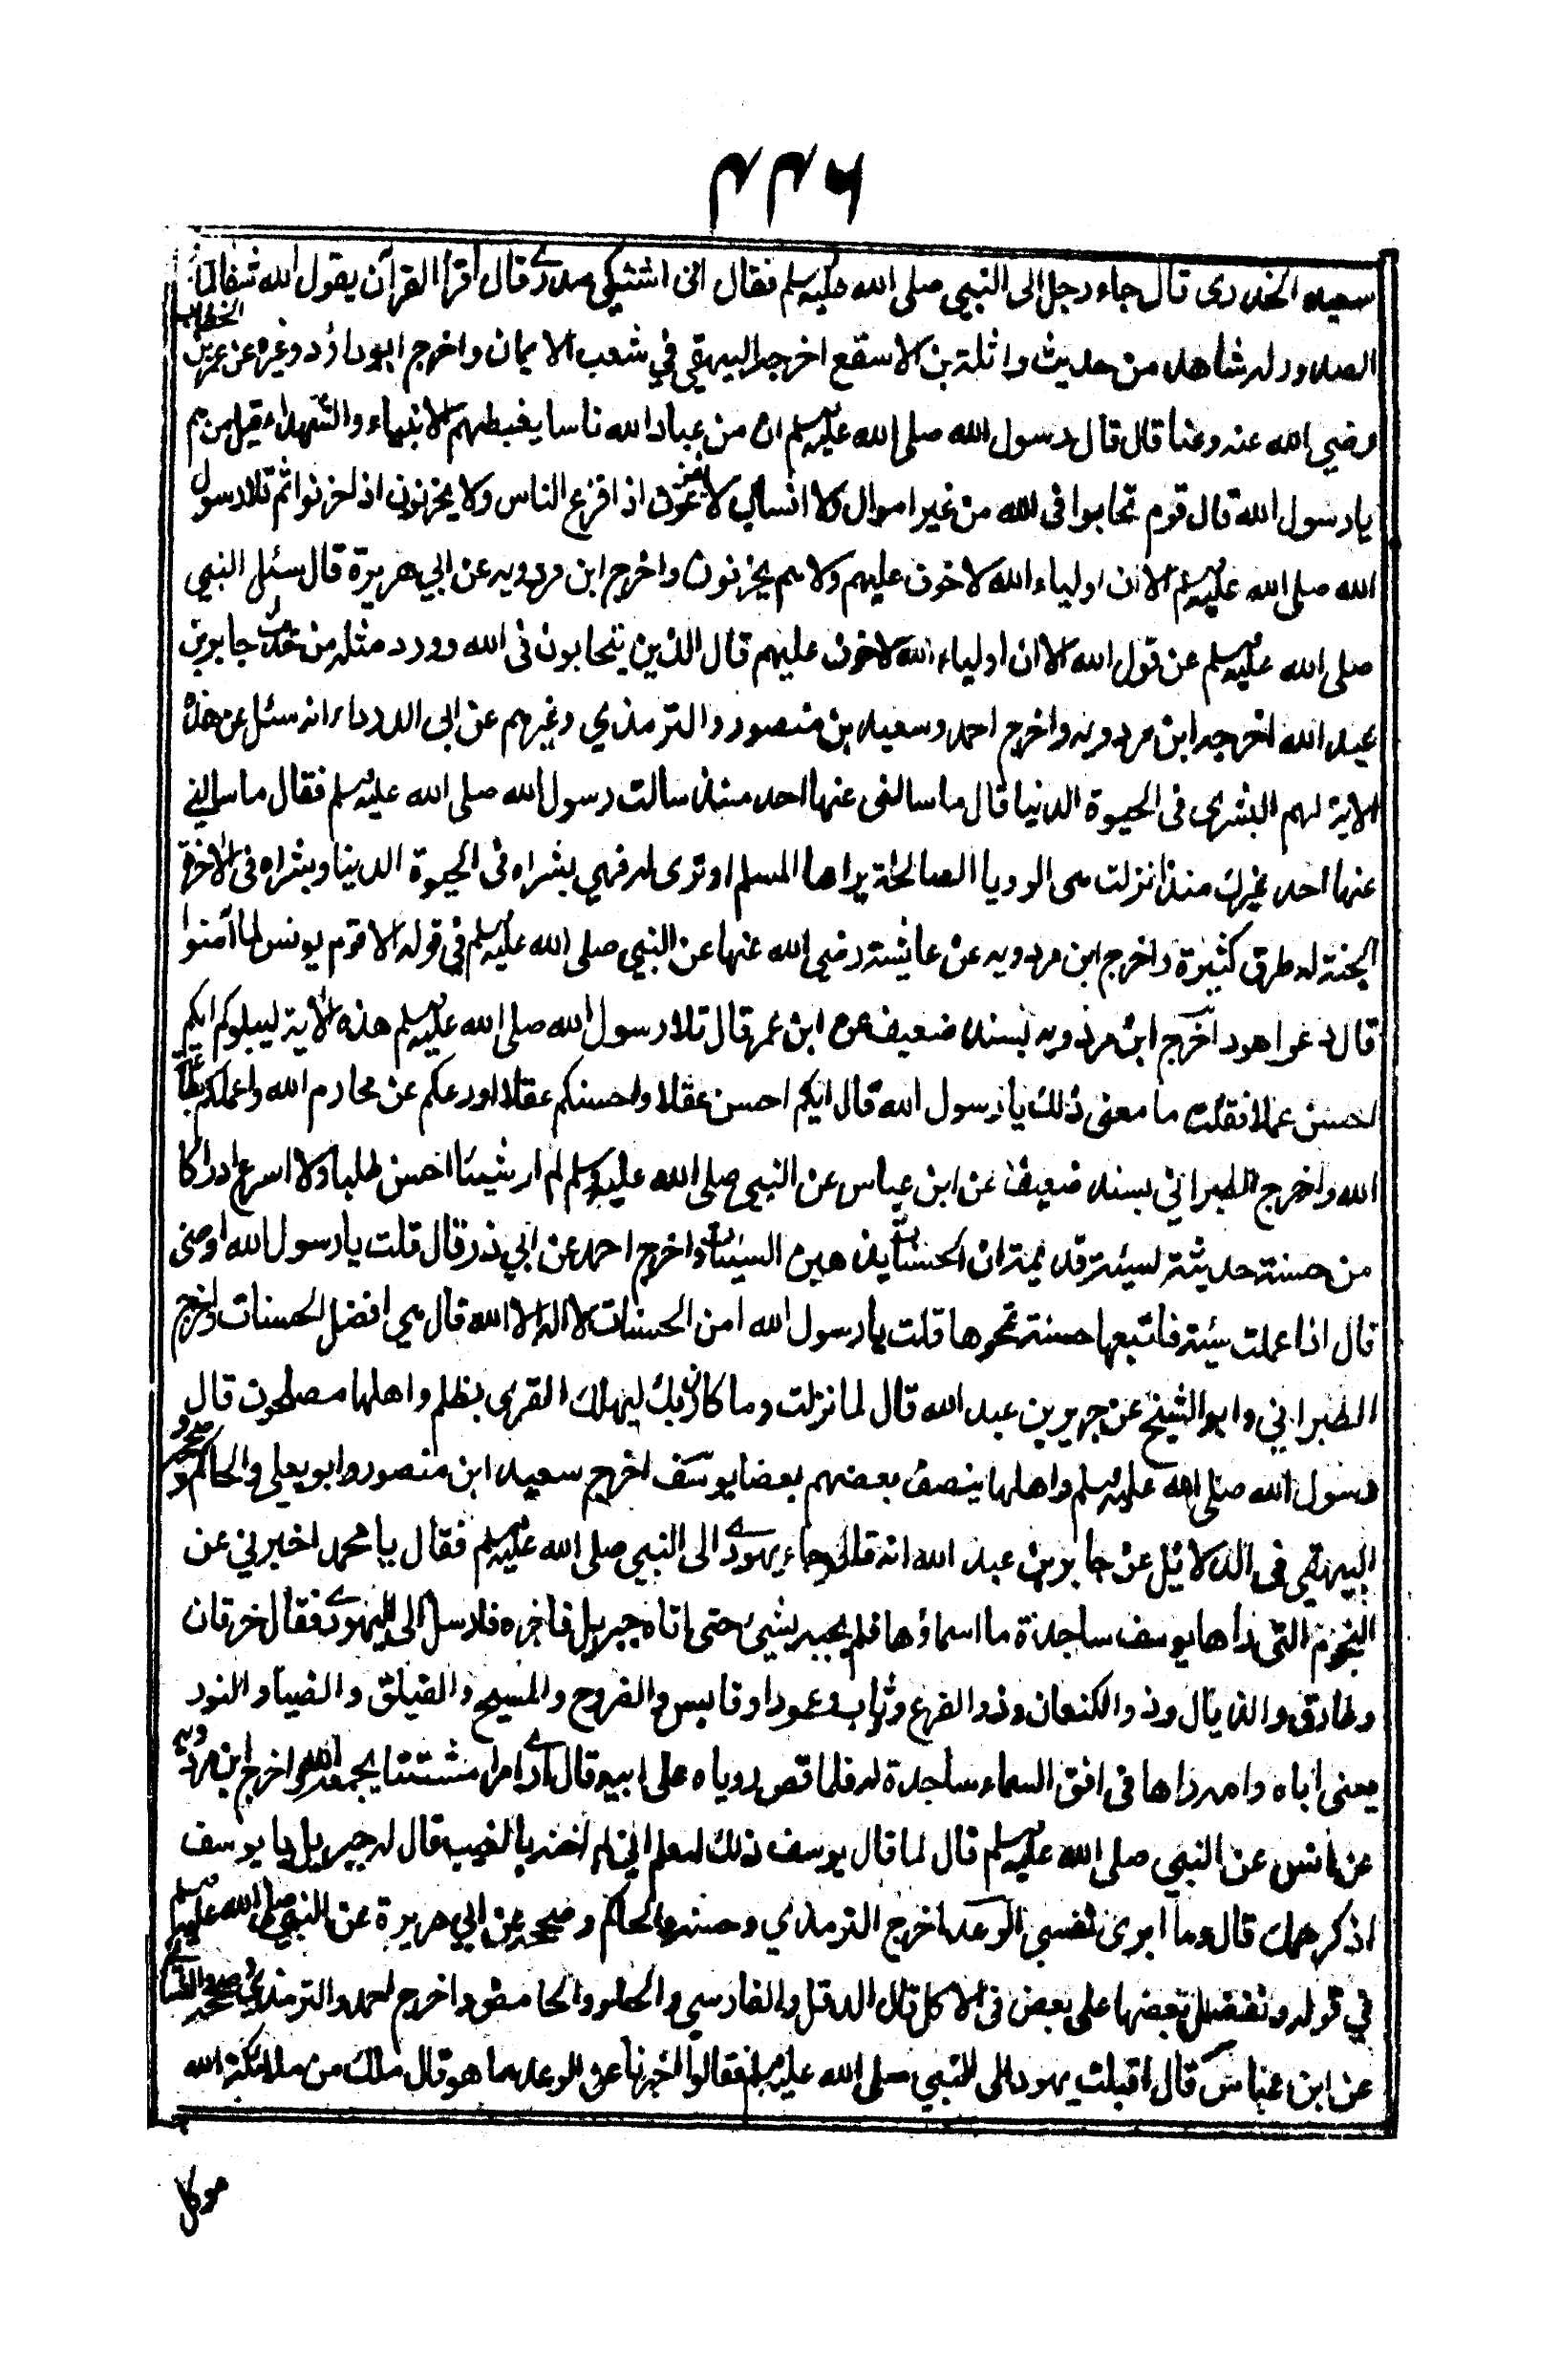 ٤٤٦
سعيد الخدرى قال جاء رجل الى النبي صلى الله عليه وسلم فقال انى اشتكى صدرى قال اقرأ القرآن يقول الله شفاء لما في
الصدور وله شاهد من حديث واثلة بن الاسقع اخرجه البيهقي في شعب الايمان واخرج ابوداؤد وغيره عن عمر بن الخطاب
رضي الله عنه وعنا قال قال رسول الله صلى الله عليه وسلم ان من عباد الله ناسا يغبطهم الانبياء والشهداء قيل من هم
يا رسول الله قال قوم تحابوا فى الله من غير اموال ولا انساب لا يفزعون اذا فزع الناس ولا يحزنون اذا حزنوا ثم تلا رسول
الله صلى الله عليه وسلم الا ان اولياء الله لا خوف عليهم ولا هم يحزنون واخرج ابن مردويه عن ابي هريرة قال سئل النبي
صلى الله عليه وسلم عن قول الله الا ان اولياء الله لا خوف عليهم قال الذين يتحابون فى الله وورد مثله من حديث جابر بن
عبد الله اخرجه ابن مردويه واخرج احمد وسعيد بن منصور والترمذي وغيرهم عن ابى الدرداء انه سئل عن هذه
الاية لهم البشرى فى الحيوة الدنيا قال ما سالنى عنها احد منذ سالت رسول الله صلى الله عليه وسلم فقال ما سالنى
عنها احد غيرك منذ انزلت هى الرويا الصالحة يراها المسلم او ترى له فهي بشراه فى الحيوة الدينا وبشراه فى الاخرة
الجنة له طرق كثيرة واخرج ابن مردويه عن عائشة رضي الله عنها عن النبي صلى الله عليه وسلم في قوله الا قوم يونس لما آمنوا
قال دعوا هود اخرج ابن مردويه بسند ضعيف عن ابن عمر قال تلا رسول الله صلى الله عليه وسلم هذه الاية ليبلوكم ايكم
احسن عملا فقلت ما معنى ذلك يا رسول الله قال ايكم احسن عقلا واحسنكم عقلا اورعكم عن محارم الله واعملكم بطاعة
الله واخرج الطبراني بسند ضعيف عن ابن عباس عن النبي صلى الله عليه وسلم لم ار شيئا احسن طلبا ولا اسرع ادراكا
من حسنة حديثة لسيئة قديمة ان الحسنات يذهبن السيئات واخرج احمد عن ابي ذر قال قلت يا رسول الله اوصنى
قال اذا عملت سيئة فاتبعها حسنة تمحوها قلت يا رسول الله امن الحسنات لا اله الا الله قال هي افضل الحسنات واخرج
الطبراني وابو الشيخ عن جرير بن عبد الله قال لما نزلت وما كان ربك ليهلك القرى بظلم واهلها مصلحون قال
رسول الله صلى الله عليه وسلم واهلها ينصف بعضهم بعضا يوسف اخرج سعيد ابن منصور وابو يعلى والحاكم وصححه و
البيهقي فى الدلائل عن جابر بن عبد الله انه قال جاء يهودى الى النبي صلى الله عليه وسلم فقال يا محمد اخبرني عن
النجوم التى راها يوسف ساجدة ما اسماؤها فلم يجبه بشيئ حتى اتاه جبريل فاخبره فارسل الى اليهودى فقال خرقان
وطارق والذيال وذو الكنعان وذو الفرع وثاب وعمودا وقابس والضروح والمسيح والفيلق والضيا والنور
يعنى اباه وامه راها فى افق السماء ساجدة له فلما قص روياه على ابيه قال ارى امرا مشتتتا يجمعه الله واخرج ابن مردويه
عن انس عن النبي صلى الله عليه وسلم قال لما قال يوسف ذلك ليعلم اني لم اخنه بالغيب قال له جبريل يا يوسف
اذكر همك قال وما ابرى نفسى الرعد اخرج الترمذي وحسنه والحاكم وصححه عن ابي هريرة عن النبي صلى الله عليه وسلم
في قوله ونفضل بعضها على بعض فى الاكل قال الدقل والفارسي والحلو والحامض واخرج احمد والترمذي وصححه والنسائى
عن ابن عباس قال اقبلت يهود الى النبي صلى الله عليه وسلم فقالوا اخبرنا عن الرعد ما هو قال ملك من ملائكة الله
موكل